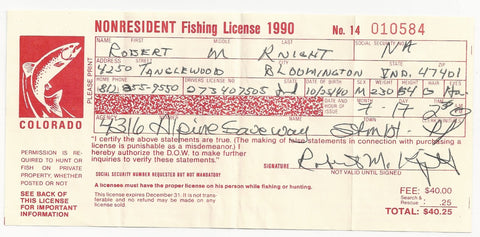 NONRESIDENT Fishing License 1990 No. 14 010584
PLEASE PRINT
FIRST MIDDLE LAST SOCIAL SECURITY NO.
ROBERT M KNIGHT NA
ADDRESS STREET CITY STATE ZIP
4250 TANGLEWOOD BLOOMINGTON IND. 47401
HOME PHONE
WEIGHT
273407505 Ind 10/25/40 M 230 64
OF ISSUE
4316 Alpine
COLORADO
"I certify the above statements are true. (The making of false statements in connection with purchasing a
license is punishable as a misdemeanor.) I
hereby authorize the D.O.W. to make further
inquiries to verify these statements."
SIGNATURE Robert M. Knight
NOT VALID UNTIL SIGNED
PERMISSION IS
REQUIRED TO HUNT or
FISH ON PRIVATE
PROPERTY, WHETHER
POSTED OR NOT
SEE BACK OF
THIS LICENSE
FOR IMPORTANT
INFORMATION
SOCIAL SECURITY NUMBER REQUESTED BUT NOT MANDATORY
A licensee must have the proper license on his person while fishing or hunting.
This license expires December 31. It is not trans-
ferable and no refund may be made on lost
license.
FEE: $40.00
Search &
Rescue - .25
TOTAL: $40.25